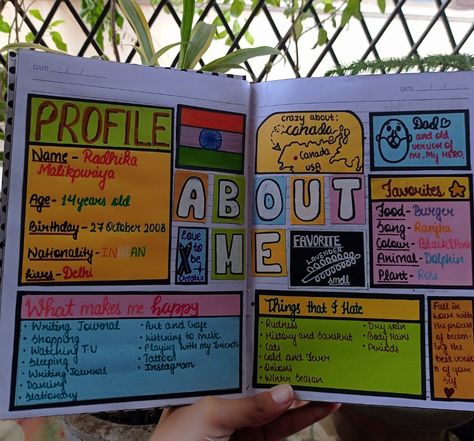 DATE
PROFILE
Name - Radhika
Malikpuriya
Age - 14 years old
Birthday - 27 October 2008
Nationality - INDIAN
Lives - Delhi
ABOUT
ME
Love
to be
crazy about:
canada
Canada
USA
FAVORITE
LAVENDER
smell
DATE
Dad
and old
version of
me. My HERO
Favourites
Food - Burger
Song - Ranjha
Colour - Black/Pink
Animal - Dolphin
Plant - Rose
What makes me happy
• Writing Journal
• Shopping
• Watching TV
• Sleeping
• Writing Journal
• Dancing
• Stationary
• Art and Craft
• Listening to music
• Playing with my friends
• Tattoos
• Instagram
Things that I Hate
• Rudness
• History and Sanskrit
• Cats
• Cold and Fever
• Onions
• Winter Season
• Dry skin
• Body Hairs
• Periods
Fall in
love with
the process
of becoming
the best
version
of your
self